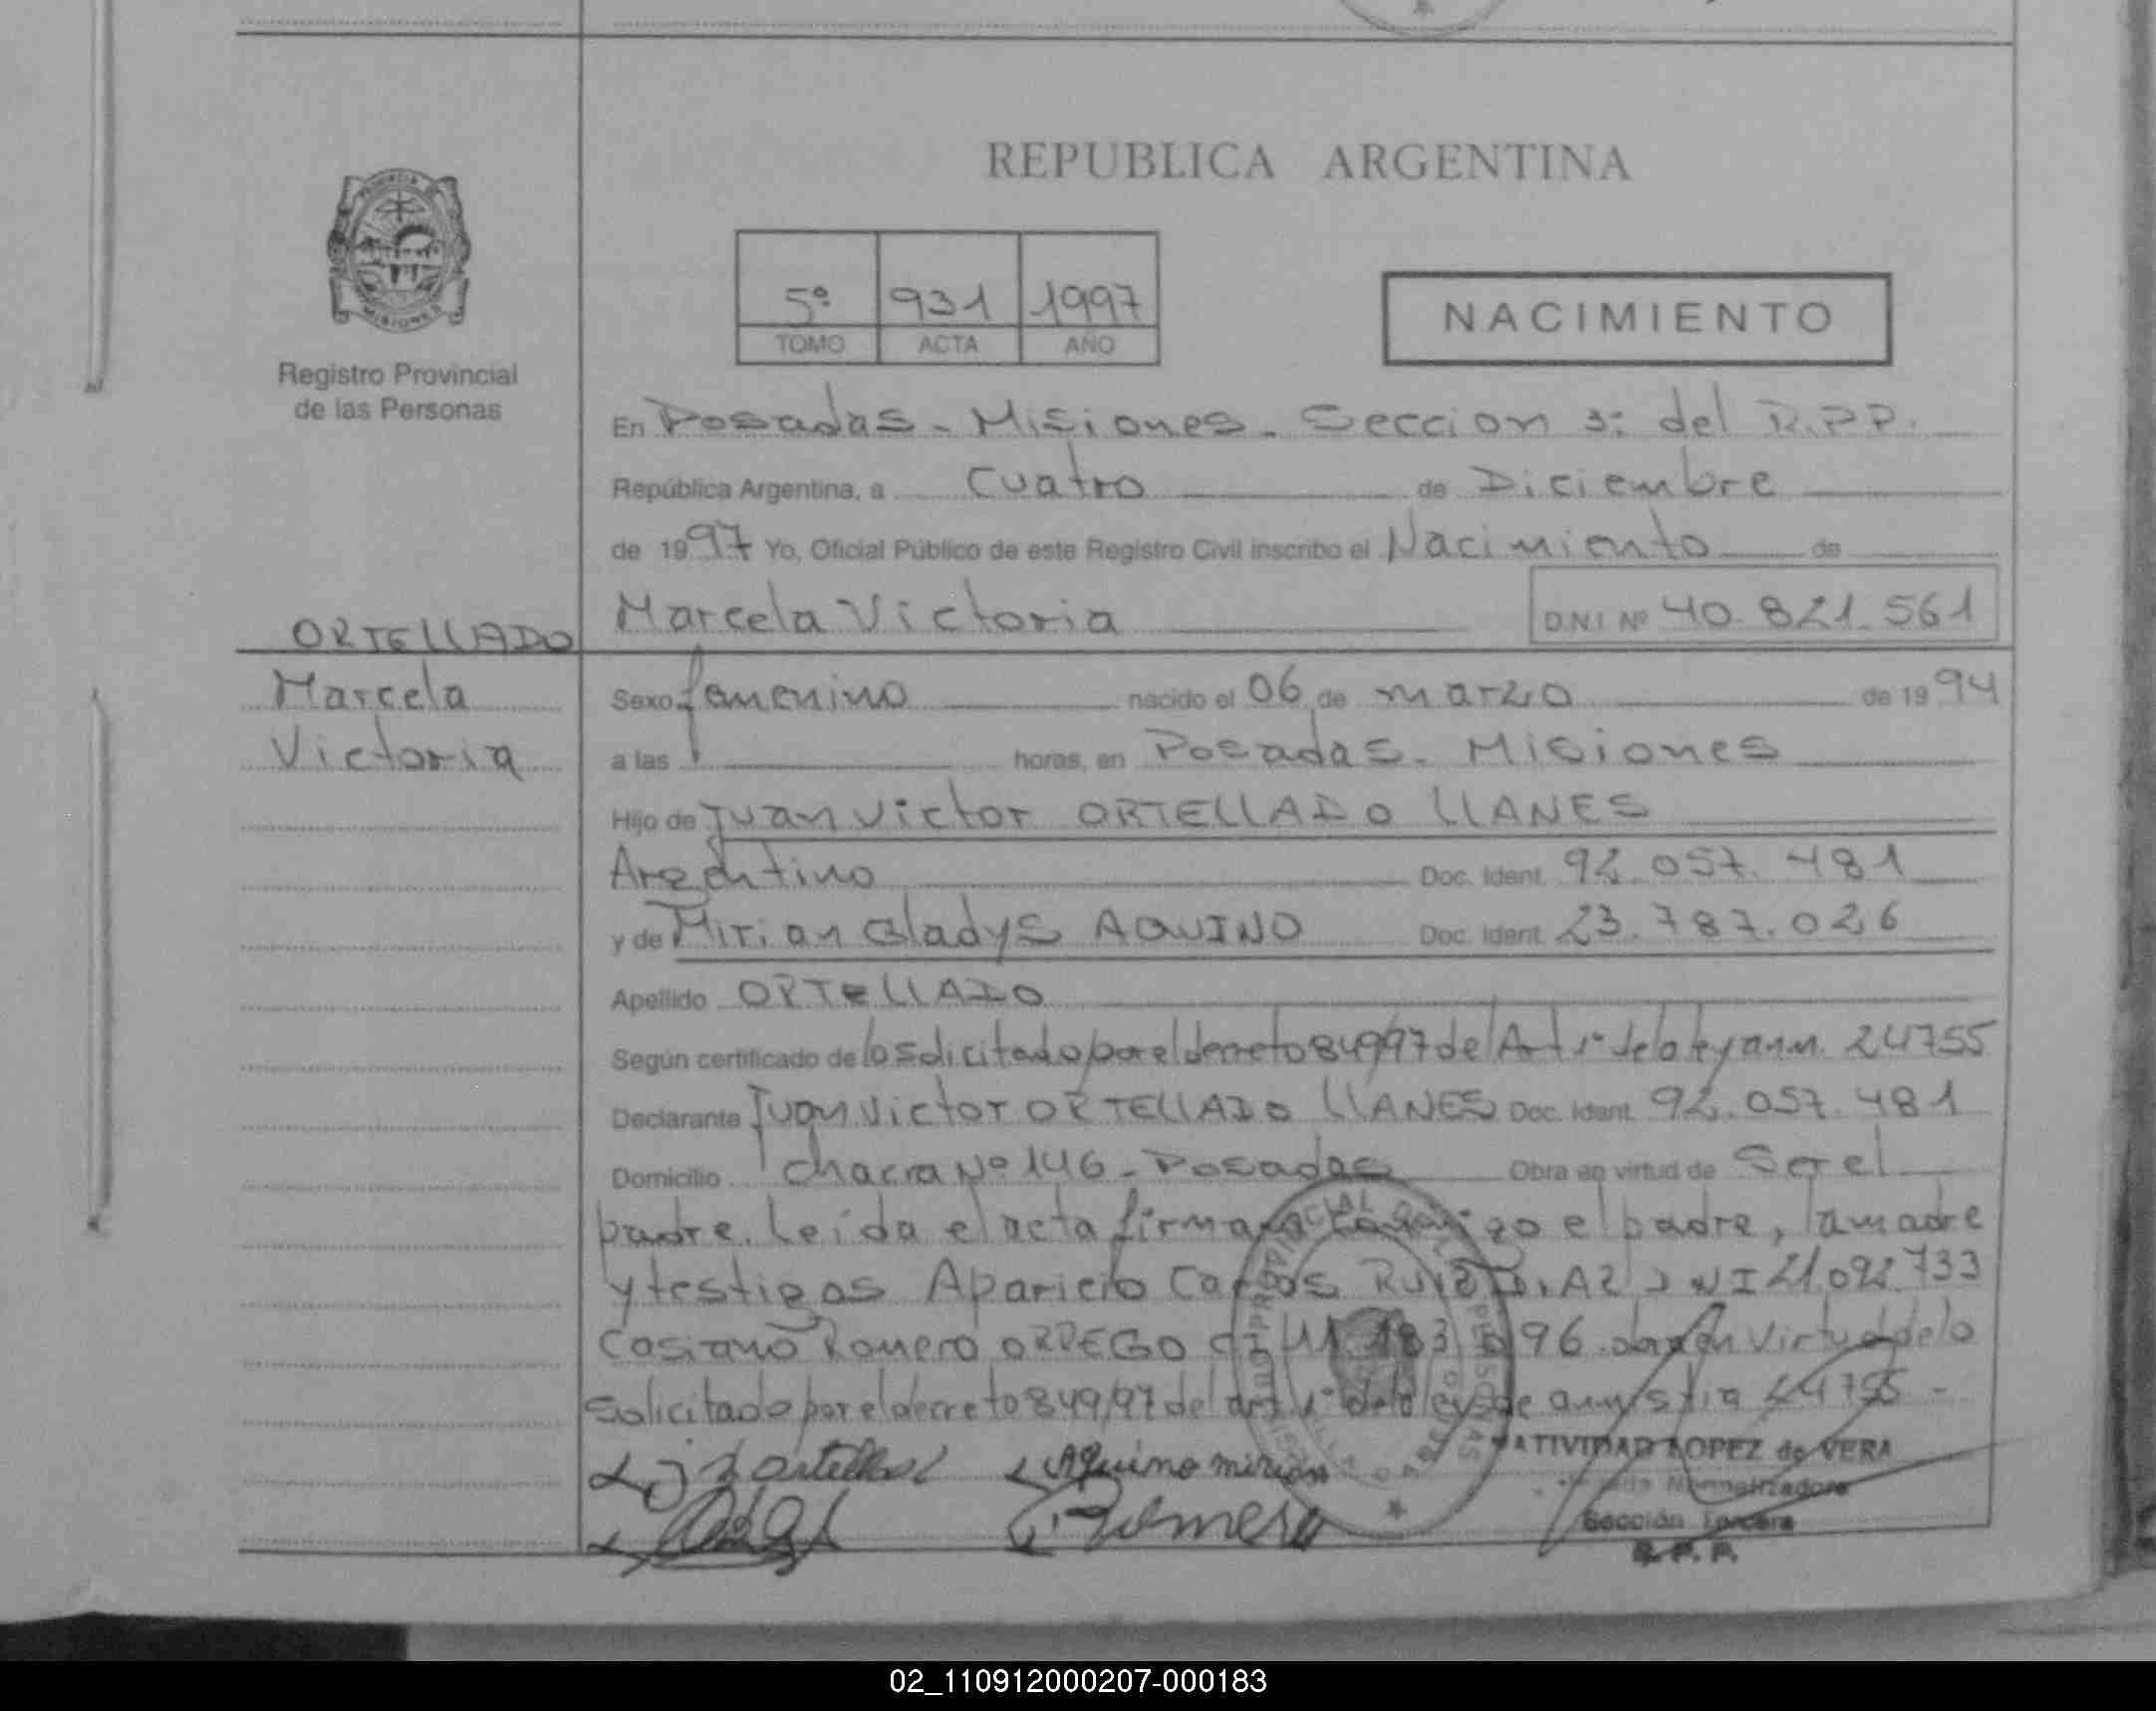 REPUBLICA ARGENTINA
PROVINCIA DE
MISIONES
Registro Provincial
de las Personas
5º 931 1997
TOMO ACTA AÑO
NACIMIENTO
En Posadas - Misiones. Seccion 3: del R.P.P.
República Argentina, a Cuatro de Diciembre
de 1997 Yo, Oficial Público de este Registro Civil inscribo el Nacimiento de
Marcela Victoria DNI Nº 40.821.561
ORTELLADO
Marcela
Victoria
Sexo femenino nacido el 06 de marzo de 1994
a las horas, en Posadas - Misiones
Hijo de Juan Victor ORTELLADO LLANES
Argentino Doc. Ident. 92.057.481
y de Mirian Gladys AQUINO Doc. Ident. 23.787.026
Apellido ORTELLADO
Según certificado de lo solicitado por el decreto 849/97 del Art 1º de la ley 24755
Declarante Juan Victor ORTELLADO LLANES Doc. Ident. 92.057.481
Domicilio Chacra Nº 146 - Posadas Obra en virtud de Ser el
padre. Leida el acta firman conmigo el padre, la madre
y testigos Aparicio Carlos RUIZ DIAZ DNI 21.092.733
Casiano Romero ORREGO CI 11.183 96. obra en Virtud de lo
Solicitado por el decreto 849/97 del art 1º de la ley de amnystia 24755 -
Aquino mirian
Romero
NATIVIDAD LOPEZ de VERA
Normalizadora
Sección Tercera
R.P.P.
02_110912000207-000183